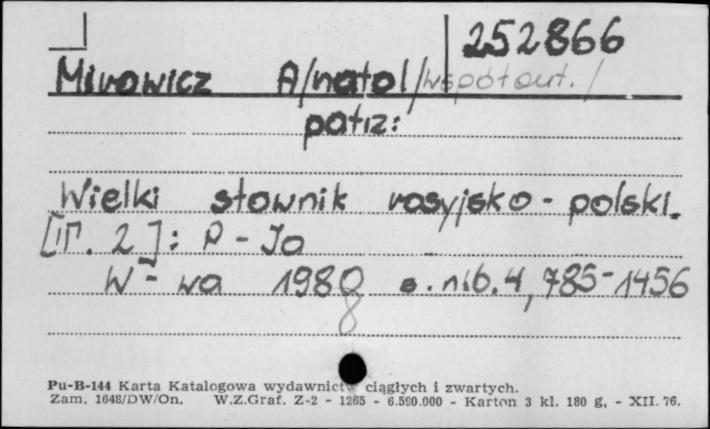 252866
Mirowicz A/natol/ współaut./
patrz:
Wielki słownik rosyjsko-polski.
[T. 2]: P - Ja
W-wa 1980 s. nlb. 4, 785-1456
8
Pu-B-144 Karta Katalogowa wydawnictw ciągłych i zwartych.
Zam. 1648/DW/On. W.Z.Graf. Z-2 - 1265 - 6.590.000 - Karton 3 kl. 180 g, - XII. 76.